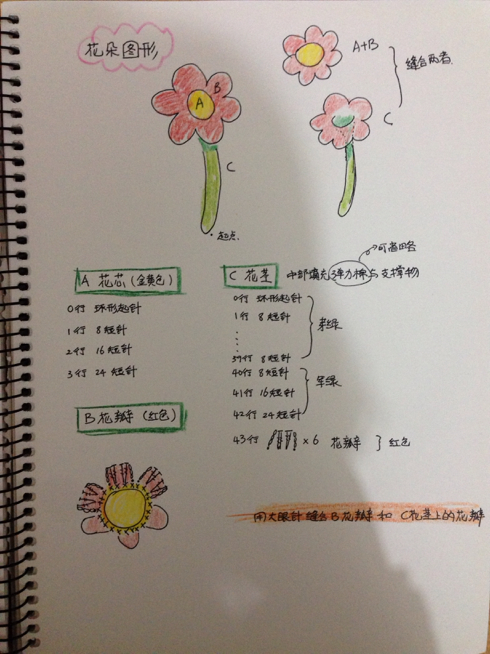 花朵图形
A+B
缝合两者
B
A
C
C
起点
可省略
A 花芯(金黄色)
0行 环形起针
1行 8短针
2行 16短针
3行 24短针
B 花瓣(红色)
C 花茎 中部填充弹力棉与支撑物
0行 环形起针
1行 8短针
39行 8短针
40行 8短针
41行 16短针
42行 24短针
草绿
43行 ×6 花瓣 红色
用大眼针缝合B花瓣和C花茎上的花瓣